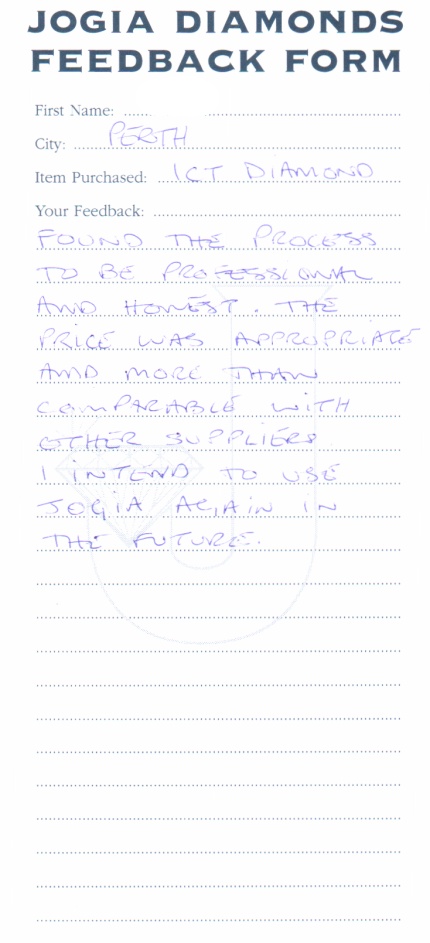 JOGIA DIAMONDS
FEEDBACK FORM
First Name:
City: PERTH
Item Purchased: 1CT DIAMOND
Your Feedback:
FOUND THE PROCESS
TO BE PROFESSIONAL
AND HONEST. THE
PRICE WAS APPROPRIATE
AND MORE THAN
COMPARABLE WITH
OTHER SUPPLIERS
I INTEND TO USE
JOGIA AGAIN IN
THE FUTURE.